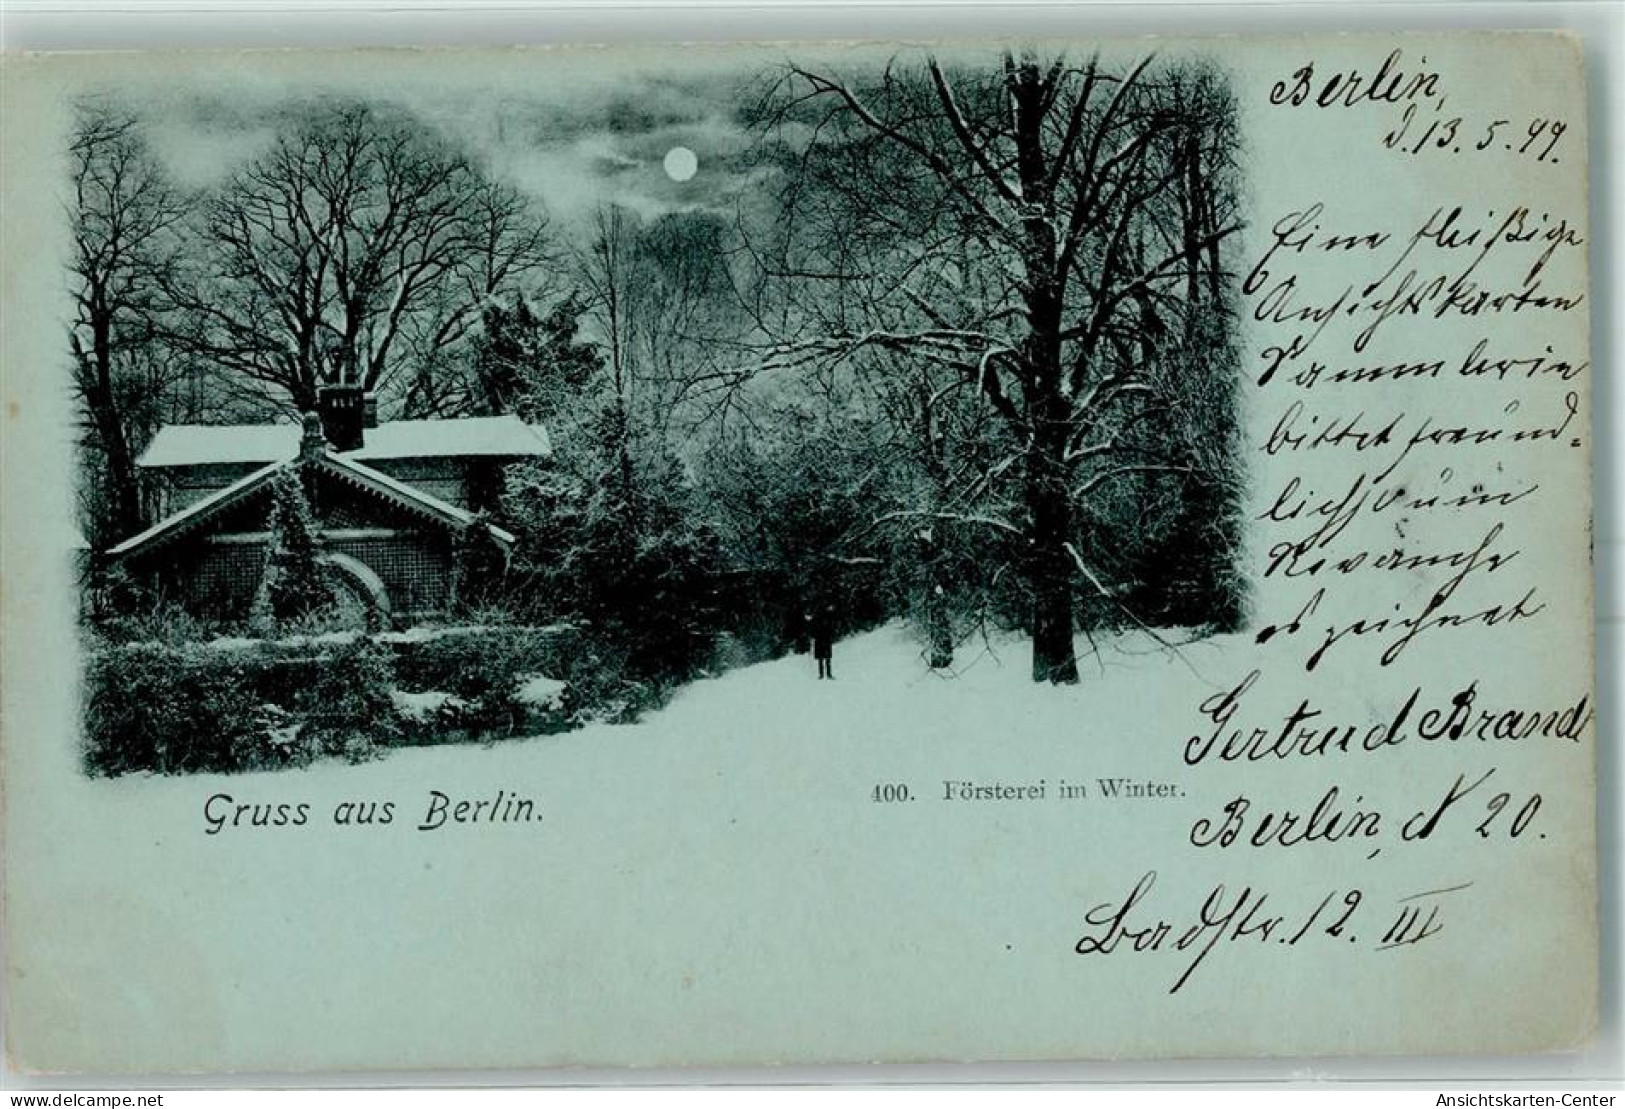 Berlin,
d. 13. 5. 99.
Eine fleißige
Ansichtskarten
Sammlerin
bittet freund-
lichst um
Revanche
es zeichnet
Gertrud Brandt
Berlin, N 20.
Badstr. 12. III
Gruss aus Berlin.
400. Försterei im Winter.
www.delcampe.net
Ansichtskarten-Center